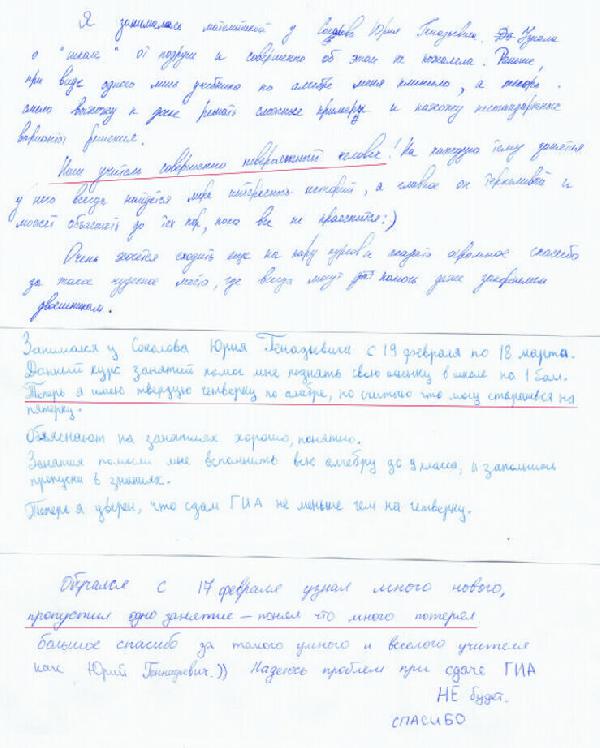 Я занималась математикой у Соколова Юрия Генадьевича. Узнала
о "школе" от подруги и совершенно об этом не пожалела. Раньше,
при виде одного лишь учебника по алгебре меня клинило, а теперь
смело выхожу к доске решать сложные примеры и нахожу нестандартные
варианты решения.
Наш учитель совершенно невероятный человек! На каждую тему занятия
у него всегда найдется море интересных историй, а главное он терпеливый и
может объяснять до тех пор, пока все не прояснится:)
Очень хочется сходить еще на пару курсов и сказать огромное спасибо
за такое чудесное место, где всегда могут помочь даже
двоечникам.
Занимался у Соколова Юрия Генадьевича с 19 февраля по 18 марта.
Данный курс занятий помог мне поднять свою оценку в школе на 1 бал.
Теперь я имею твердую четверку по алгебре, но считаю что могу стараться на
пятерку.
Объясняют на занятиях хорошо, понятно.
Занятия помогли мне вспомнить всю алгебру до 9 класса, и заполнить
пропуски в знаниях.
Теперь я уверен, что сдам ГИА не меньше чем на четверку.
Обучался с 17 февраля узнал много нового,
пропустил одно занятие – понял что много потерял
большое спасибо за такого умного и веселого учителя
как Юрий Геннадьевич.)) Надеюсь проблем при сдаче ГИА
НЕ будет.
СПАСИБО